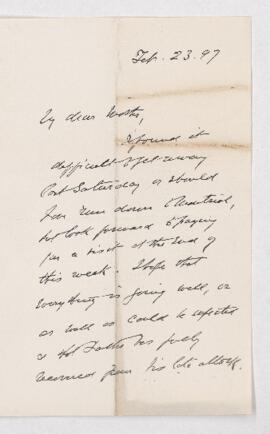 Feb. 23. 97
My dear Mother,
I found it
difficult to get away
last Saturday or should
have run down to Montreal,
but look forward to paying
you a visit at the end of
this week. I hope that
everything is going well, or
as well as could be expected
& that Father has fully
recovered from his late attack.